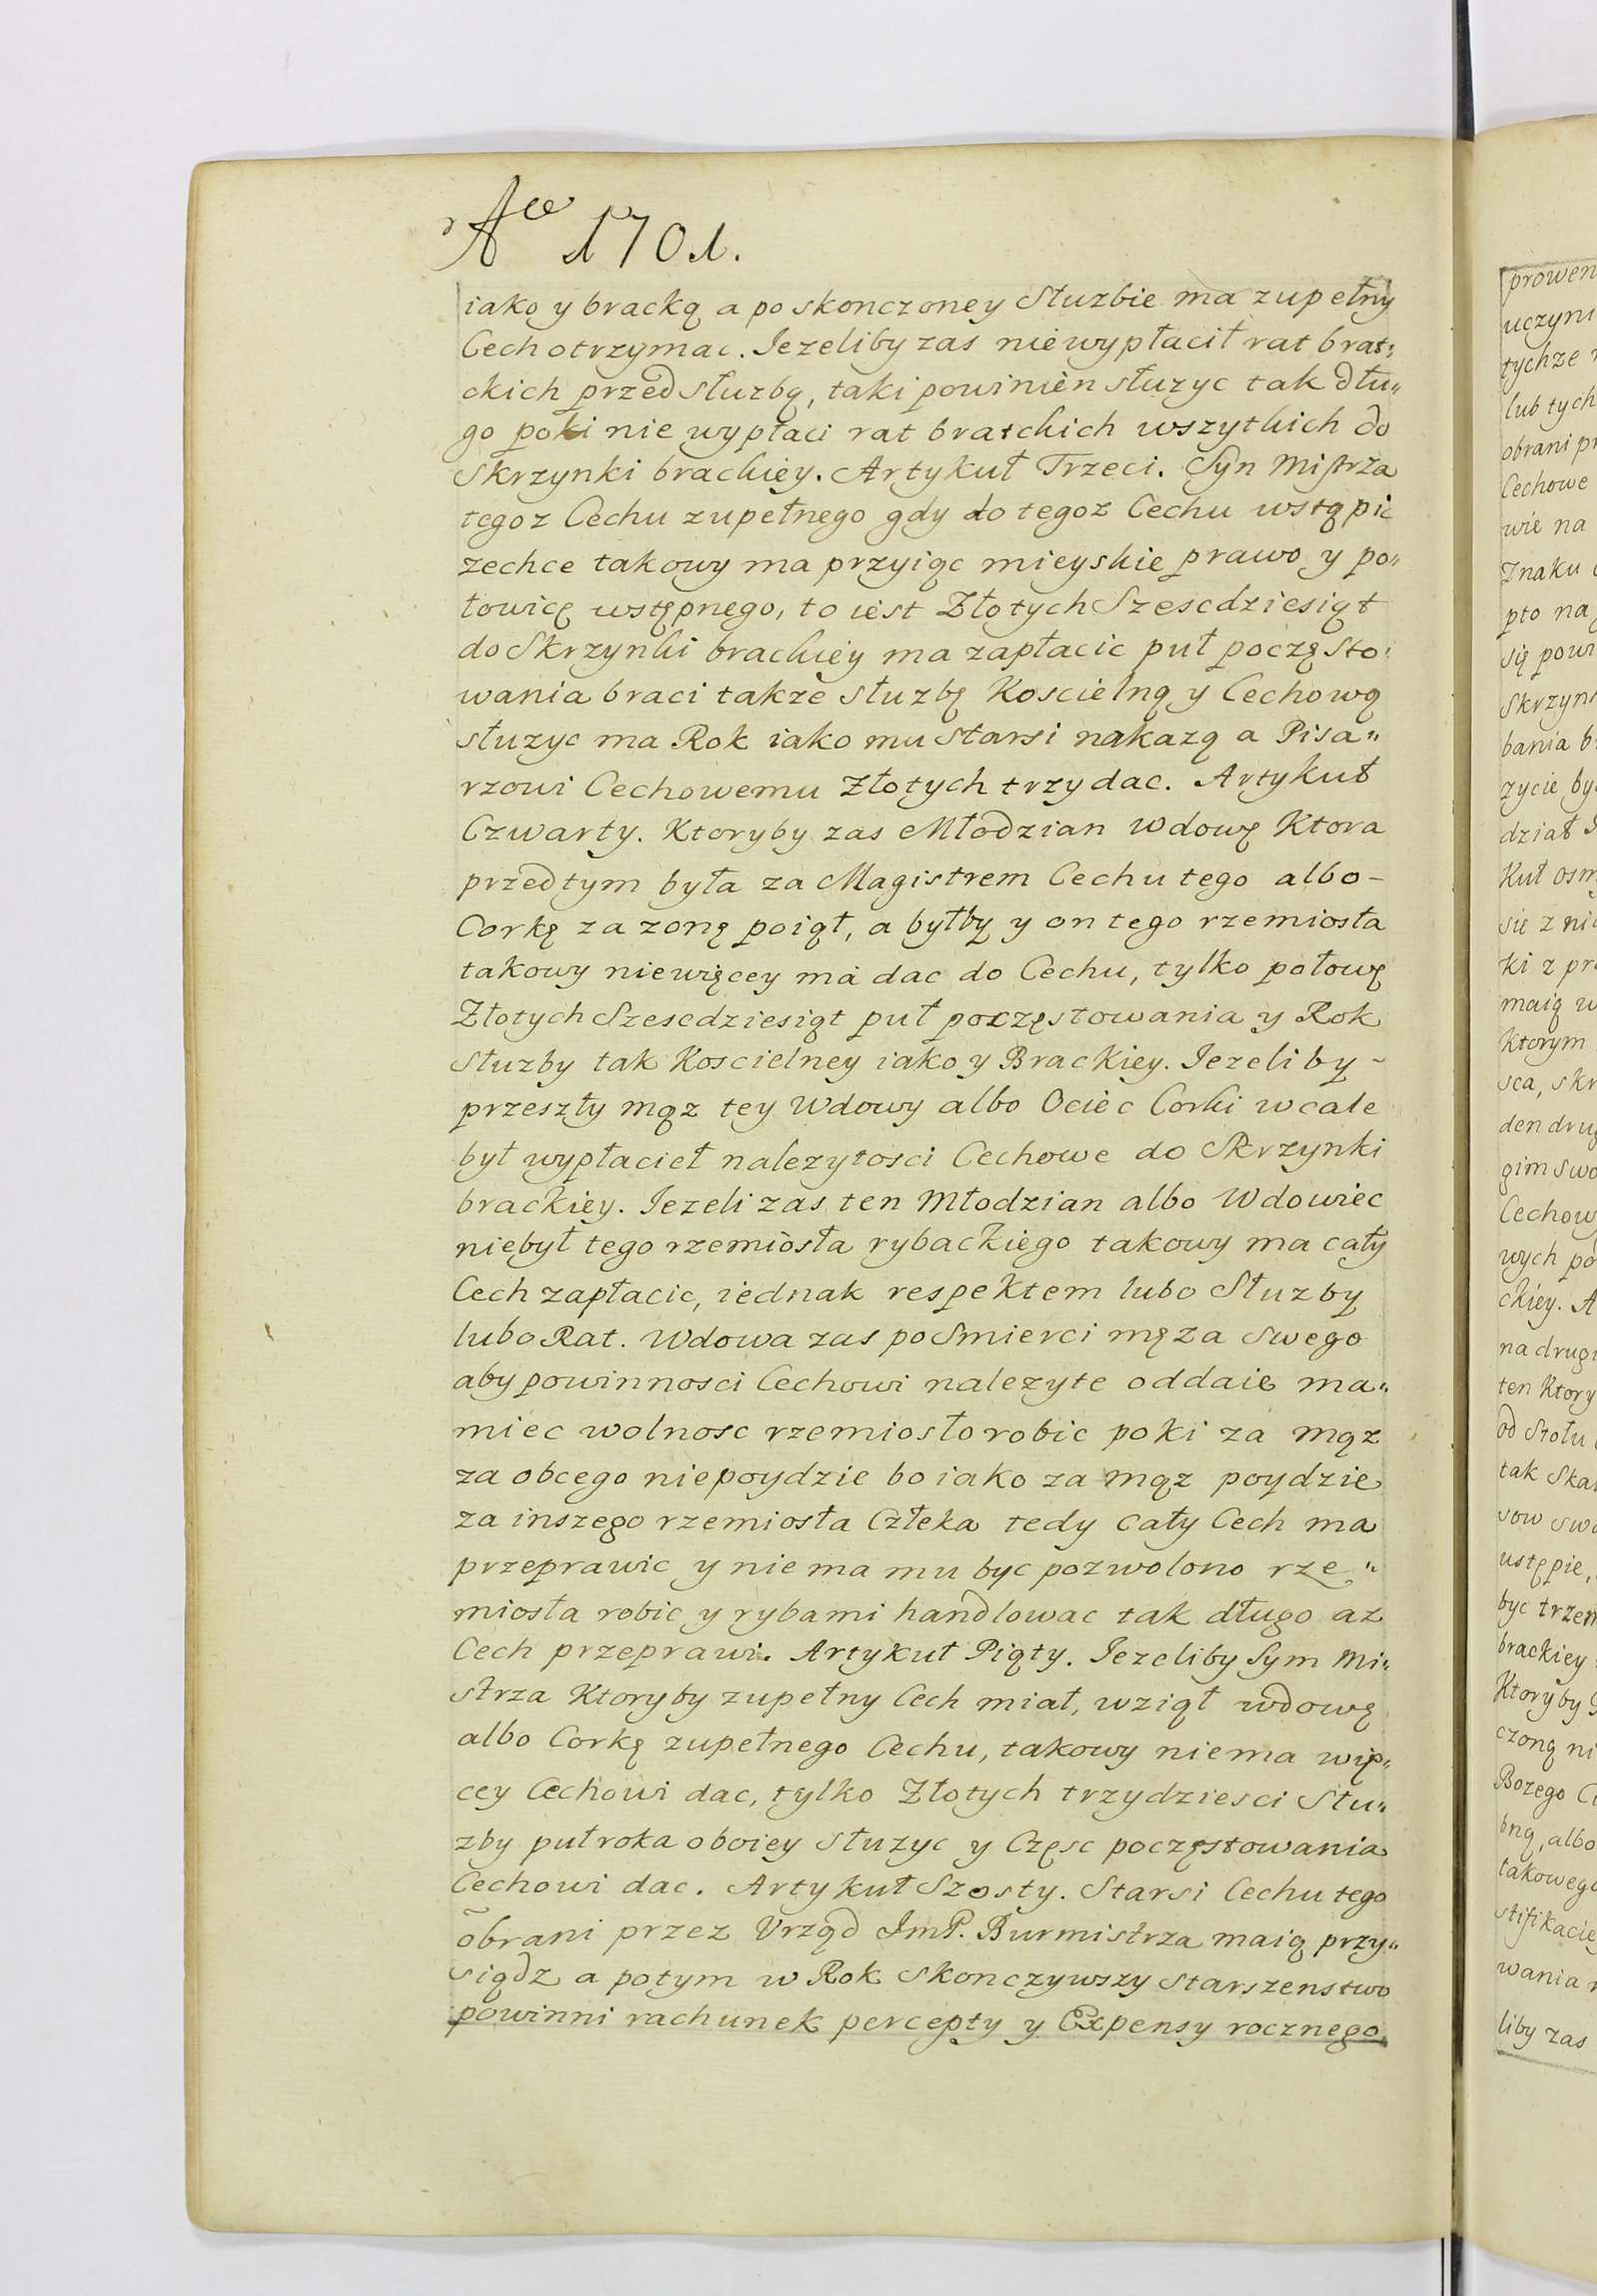 Ao 1701.
iako y bracką a po skonczoney Służbie ma zupełny
Cech otrzymac. Iezeliby zas niewypłacił rat brat„
ckich przed służbą, taki powinien służyc tak dłu„
go poki nie wypłaci rat bratckich wszytkich do
Skrzynki brackiey. Artykuł Trzeci. Syn Mistrza
tegoz Cechu zupełnego gdy do tegoz Cechu wstąpic
zechce takowy ma przyiąc mieyskie prawo y po„
łowicę wstępnego, to iest Złotych Szescdziesiąt
do Skrzynki brackiey ma zapłacic puł poczęsto„
wania braci takze słuzbę Koscielną y Cechową
słuzyc ma Rok iako mu Starsi nakazą a Pisa„
rzowi Cechowemu Złotych trzy dac. Artykuł
Czwarty. Ktoryby zas Młodzian Wdowę Ktora
przedtym była za Magistrem Cechu tego albo-
Corkę za zonę poiął, a byłby y on tego rzemiosła
takowy niewięcey ma dac do Cechu, tylko połowę
Złotych Szescdziesiąt puł poczęstowania y Rok
Słuzby tak Koscielney iako y Brackiey. Iezeli by-
przeszły mąz tey Wdowy albo Ociec Corki wcale
był wypłacieł nalezytosci Cechowe do Skrzynki
brackiey. Iezeli zas ten Młodzian albo Wdowiec
niebył tego rzemiosła rybackiego takowy ma cały
Cech zapłacic, iednak respektem lubo Słuzby
lubo Rat. Wdowa zas po Smierci męza Swego
aby powinnosci Cechowi nalezyte oddaie ma„
miec wolnosc rzemiosło robic poki za mąz
za obcego niepoydzie bo iako za mąz poydzie
za inszego rzemiosła Człeka tedy cały Cech ma
przeprawic y nie ma mu byc pozwolono rze„
miosła robic y rybami handlowac tak długo az
Cech przeprawi. Artykuł Piąty. Iezeliby Sym Mi„
strza Ktoryby zupełny Cech miał, wziął wdowę
albo Corkę zupełnego Cechu, takowy niema wię„
cey Cechowi dac, tylko Złotych trzydziesci Słu„
zby puł roka oboiey słuzyc y Częsc poczęstowania
Cechowi dac. Artykuł Szosty. Starsi Cechu tego
obrani przez Vrząd JmP. Burmistrza maią przy„
siądz a potym w Rok skonczywszy starszenstwo
powinni rachunek percepty y Expensy rocznego
prowen
uczyni
tychze
lub tych
obrani pr
Cechowe
wie na
Znaku
pto na
się powi
Skrzyn
bania b
zycie by
dział
Kuł osm
się z ni
ki z pr
maią w
Ktorym
sca, skr
den drug
gim swo
Cechow
wych po
ckiey. A
na drugi
ten Ktory
od Stołu
tak Ska
sow swo
ustępie,
byc trzem
brackiey
Ktoryby
czoną ni
Bozego C
bną, albo
takowego
stifikacie
wania
liby zas